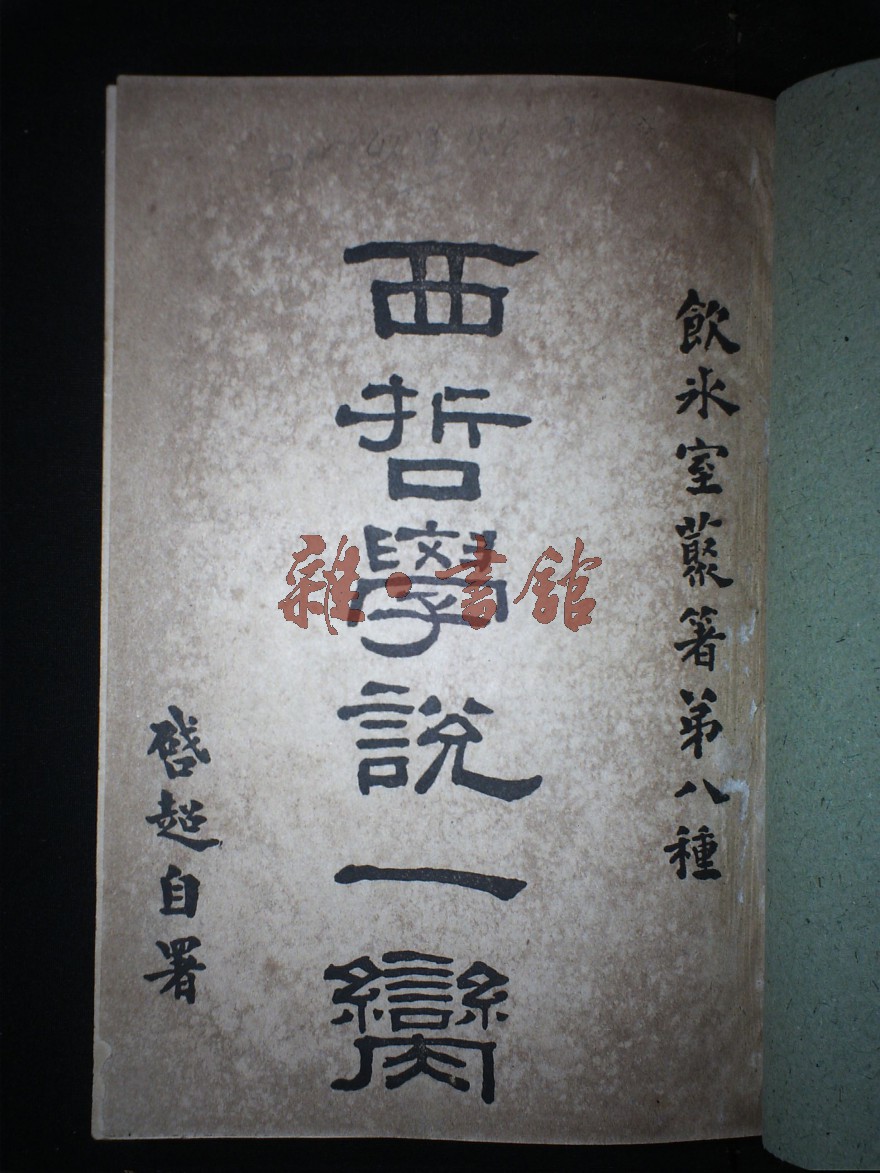 飲冰室叢箸第八種
西哲學說一臠
啓超自署
雜·書館